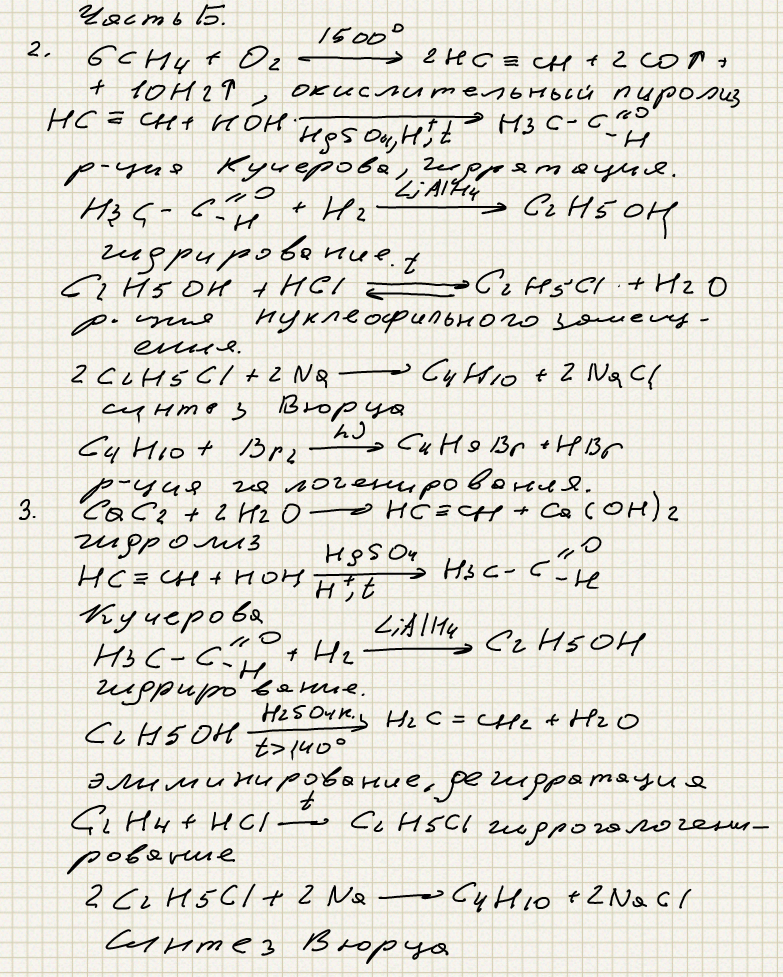 Часть Б.
2. 6CH4 + O2 1500° ⟶ 2HC≡CH + 2CO↑ +
+ 10H2↑, окислительный пиролиз
HC≡CH + HOH HgSO4, H⁺, t ⟶ H3C-C=O -H
р-ция Кучерова, гидратация.
H3C-C=O -H + H2 LiAlH4 ⟶ C2H5OH
гидрирование.
C2H5OH + HCl t ⇄ C2H5Cl + H2O
р-ция нуклеофильного замещ-
ения.
2C2H5Cl + 2Na ⟶ C4H10 + 2NaCl
синтез Вюрца
C4H10 + Br2 hν ⟶ C4H9Br + HBr
р-ция галогенирования.
3. CaC2 + 2H2O ⟶ HC≡CH + Ca(OH)2
гидролиз
HC≡CH + HOH HgSO4 H⁺, t ⟶ H3C-C=O -H
Кучерова
H3C-C=O -H + H2 LiAlH4 ⟶ C2H5OH
гидрирование.
C2H5OH H2SO4к. t>140° ⟶ H2C=CH2 + H2O
элиминирование, дегидратация
C2H4 + HCl t ⟶ C2H5Cl гидрогалогени-
рование
2C2H5Cl + 2Na ⟶ C4H10 + 2NaCl
Синтез Вюрца